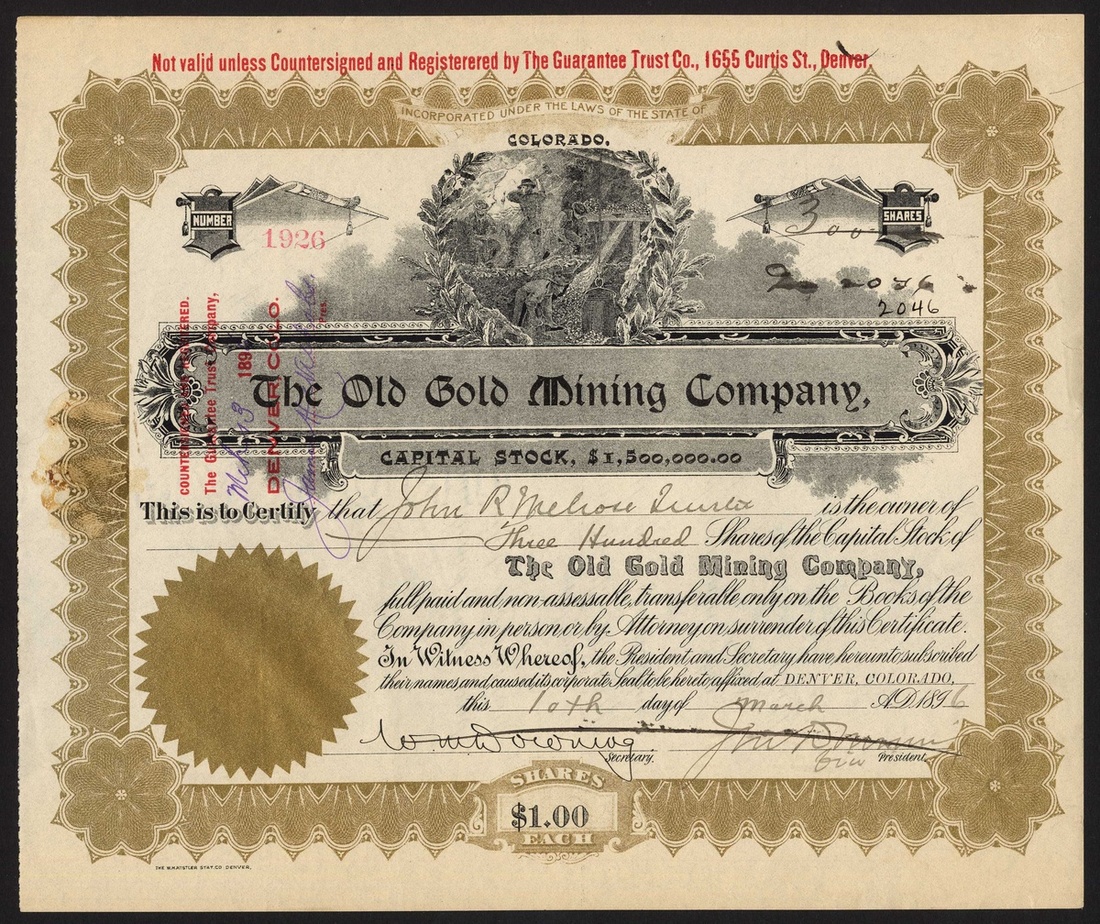 Not valid unless Countersigned and Registerered by The Guarantee Trust Co., 1655 Curtis St., Denver.
INCORPORATED UNDER THE LAWS OF THE STATE OF
COLORADO.
NUMBER
1926
300
SHARES
2036
2046
COUNTERSIGNED AND REGISTERED.
The Guarantee Trust Company,
189
DENVER, COLO.
Pres.
The Old Gold Mining Company,
CAPITAL STOCK, $1,500,000.00
This is to Certify that John R Melrose Trustee is the owner of
Three Hundred Shares of the Capital Stock of
The Old Gold Mining Company,
full paid and non-assessable, transferable only on the Books of the
Company in person or by Attorney on surrender of this Certificate.
In Witness Whereof, the President and Secretary have hereunto subscribed
their names and caused its corporate Seal to be hereto affixed at DENVER, COLORADO,
this 10th day of March A.D. 1896
Wm Downing
Secretary.
President.
SHARES
$1.00
EACH